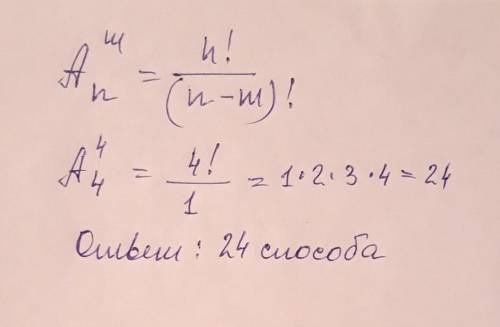 A_n^m = n! / (n - m)!
A_4^4 = 4! / 1 = 1 · 2 · 3 · 4 = 24
Ответ: 24 способа